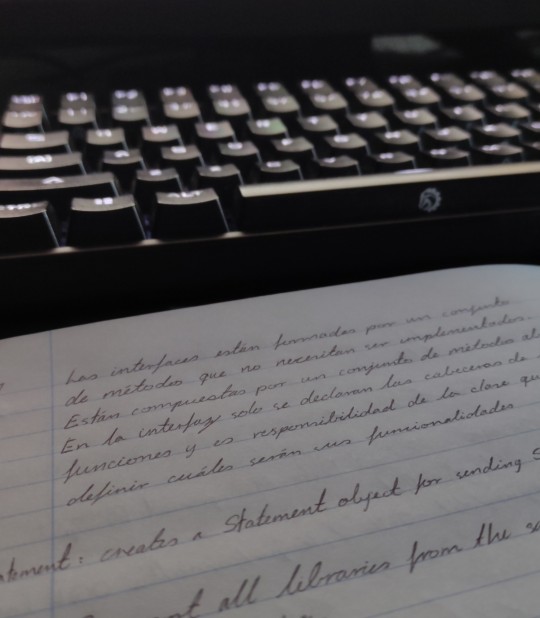 Las interfaces están formadas por un conjunto
de métodos que no necesitan ser implementados.
Están compuestas por un conjunto de métodos
En la interfaz solo se declaran las cabeceras de
funciones y es responsibilidad de la clase
definir cuáles serán sus funcionalidades
creates a Statement object for sending
all libraries from the